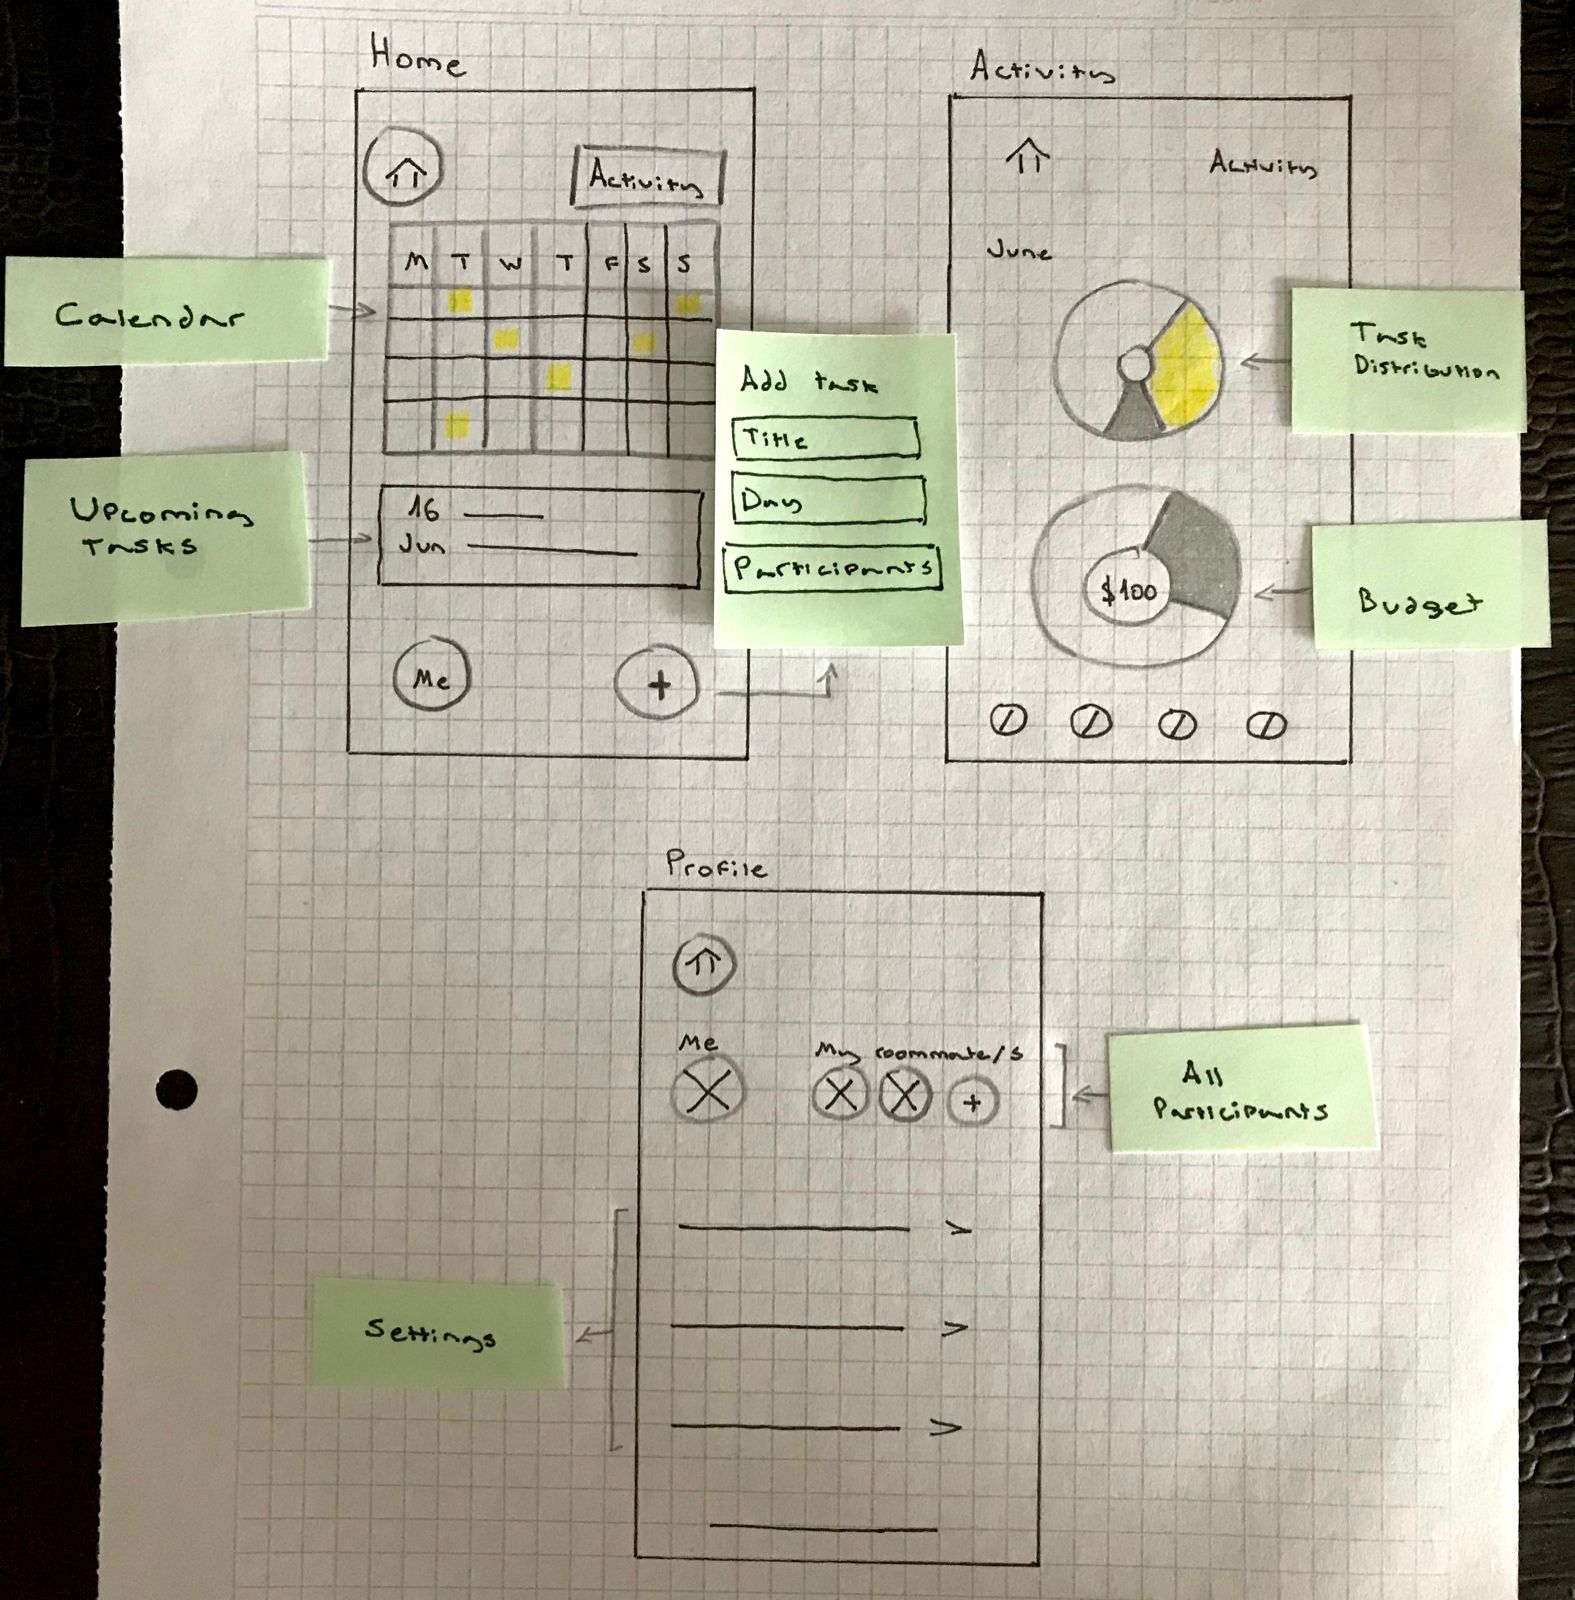 Home
Activity
M T W T F S S
Calendar
Upcoming
Tasks
16
Jun
Me
+
Add task
Title
Day
Participants
Activity
Activity
June
Task
Distribution
$100
Budget
Profile
Me
My roommate/s
+
All
Participants
Settings